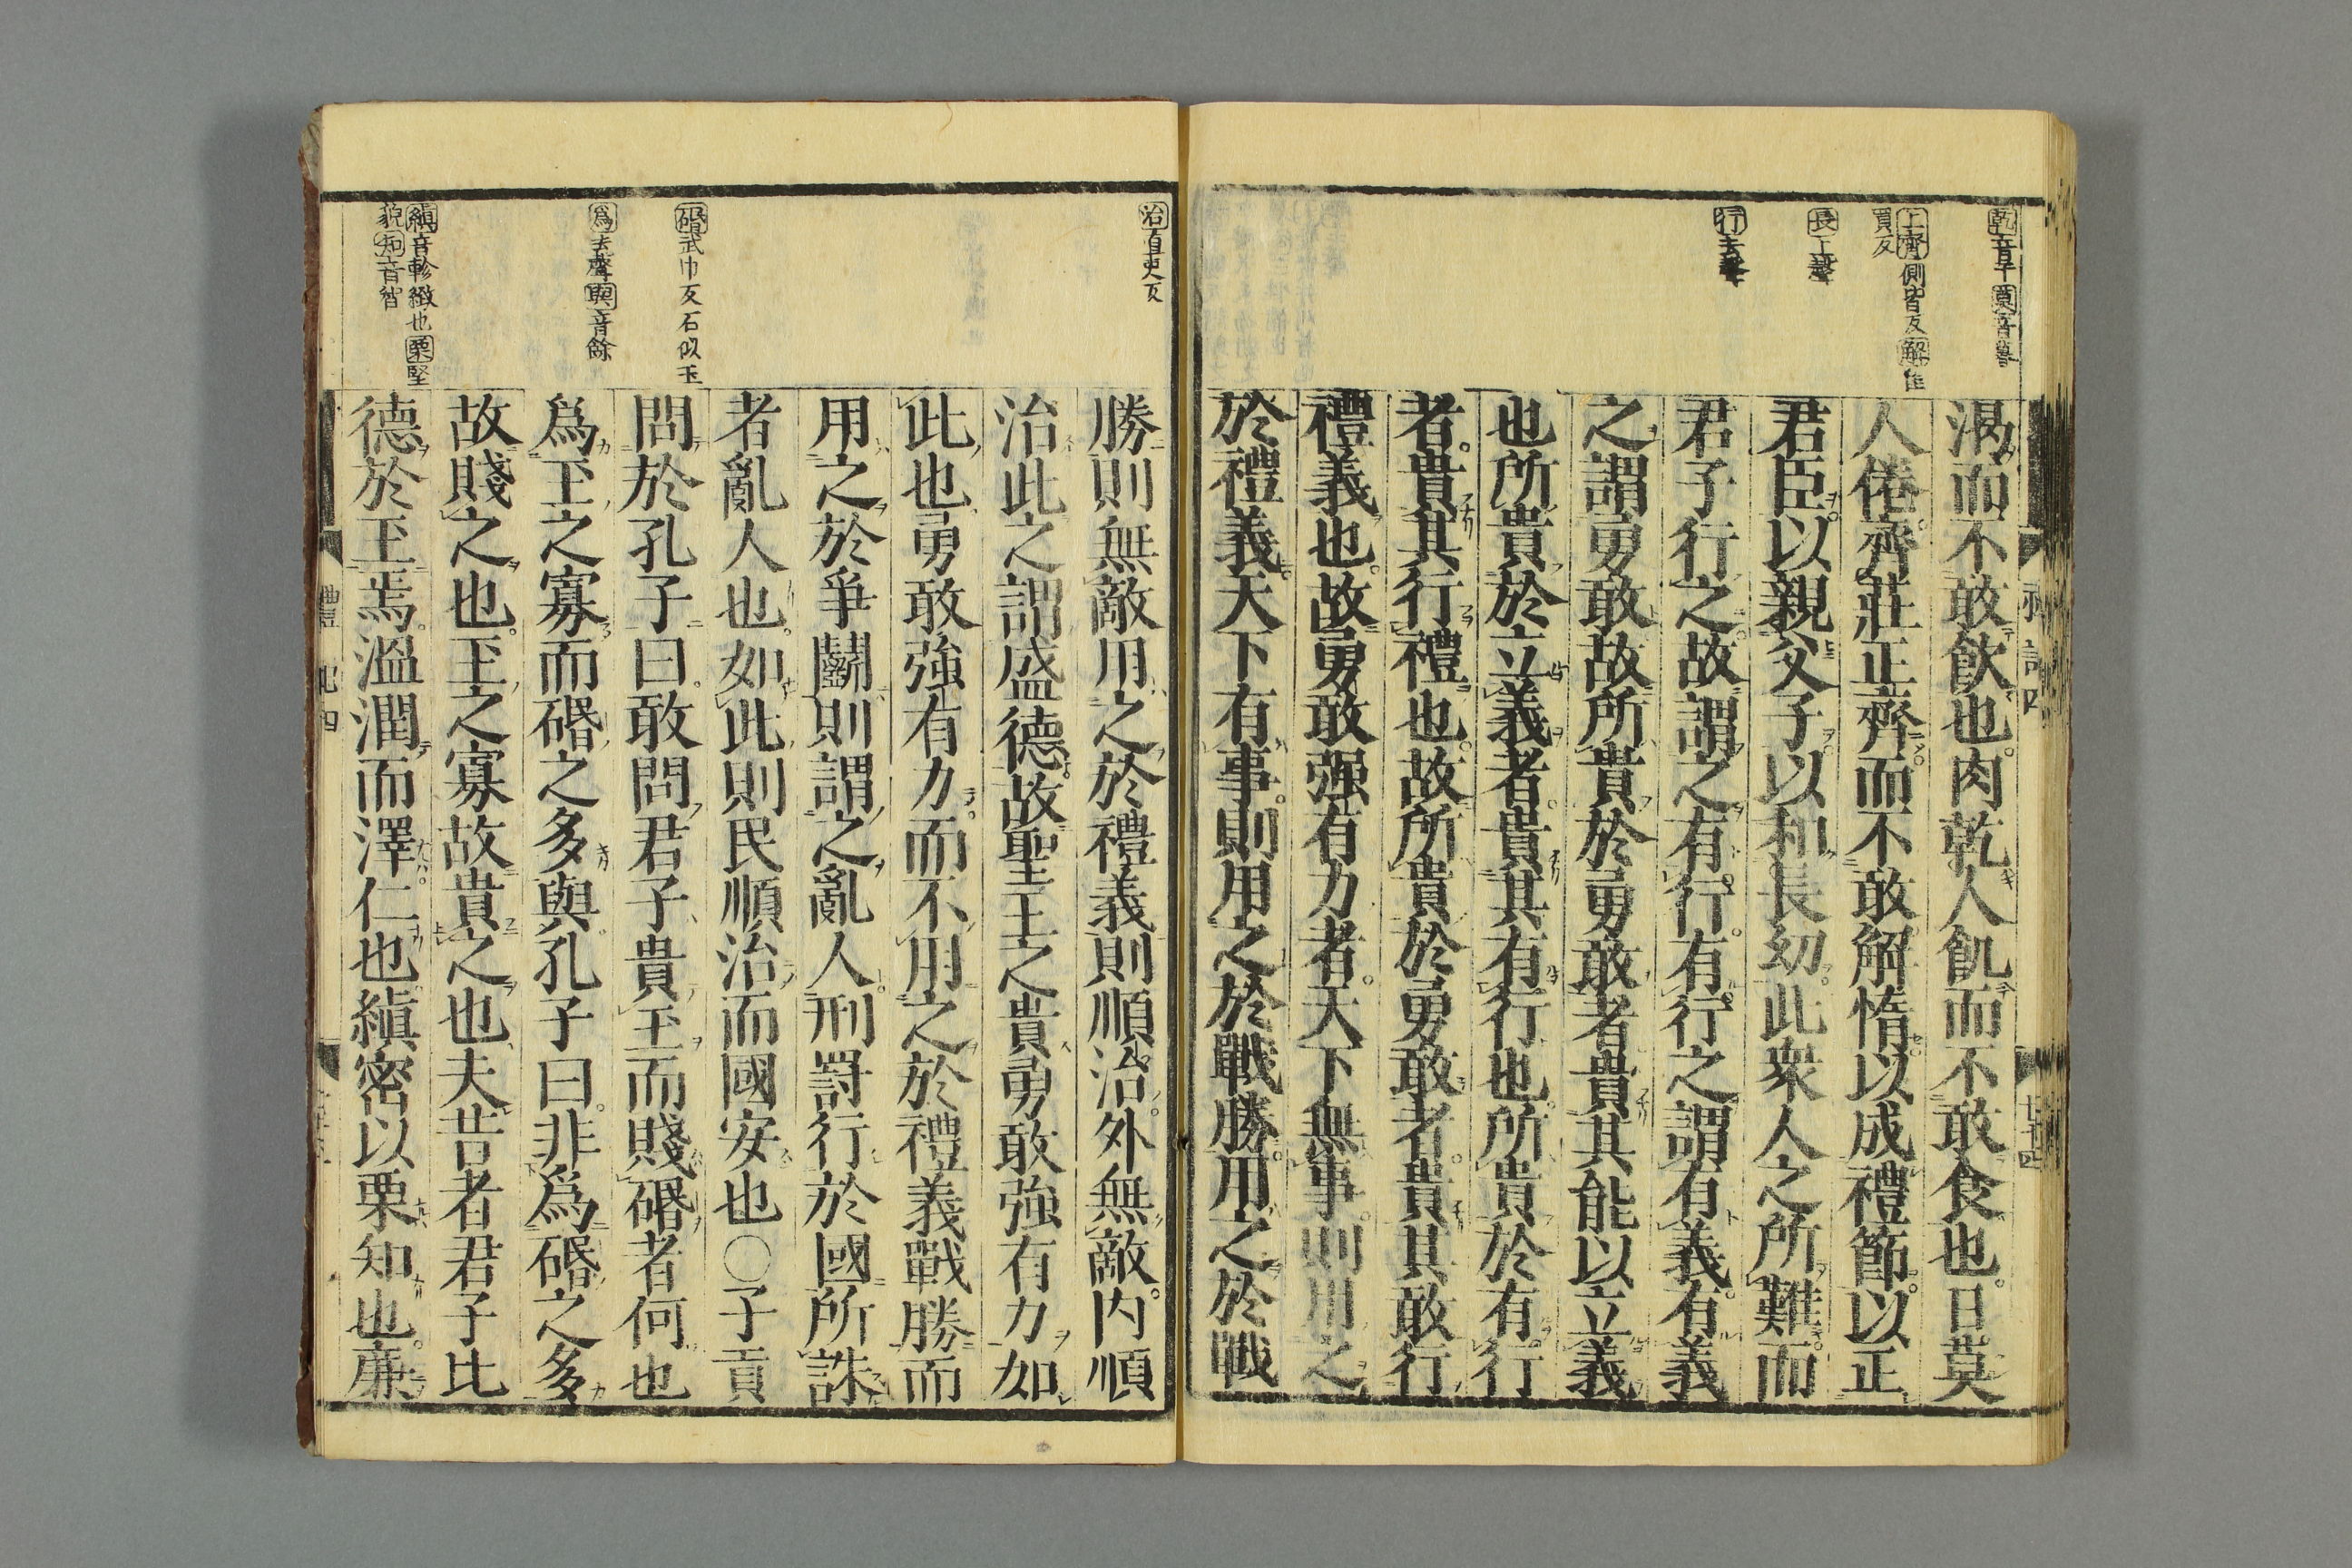 乾音干莫音暮
上齊側皆反解佳
買反
長上聲
行去聲
渴而不敢飲也肉乾人飢而不敢食也日莫
人倦齊莊正齊而不敢解惰以成禮節以正
君臣以親父子以和長幼此衆人之所難而
君子行之故謂之有行有行之謂有義有義
之謂勇敢故所貴於勇敢者貴其能以立義
也所貴於立義者貴其有行也所貴於有行
者貴其行禮也故所貴於勇敢者貴其敢行
禮義也故勇敢强有力者天下無事則用之
於禮義天下有事則用之於戰勝用之於戰
治直吏反
碈武巾反石似玉
爲去聲與音餘
縝音軫緻也栗堅
貌知音智
勝則無敵用之於禮義則順治外無敵内順
治此之謂盛德故聖王之貴勇敢強有力如
此也勇敢強有力而不用之於禮義戰勝而
用之於爭鬭則謂之亂人刑罰行於國所誅
者亂人也如此則民順治而國安也〇子貢
問於孔子曰敢問君子貴玉而賤碈者何也
爲玉之寡而碈之多與孔子曰非爲碈之多
故賤之也玉之寡故貴之也夫昔者君子比
德於玉焉溫潤而澤仁也縝密以栗知也廉
禮記四